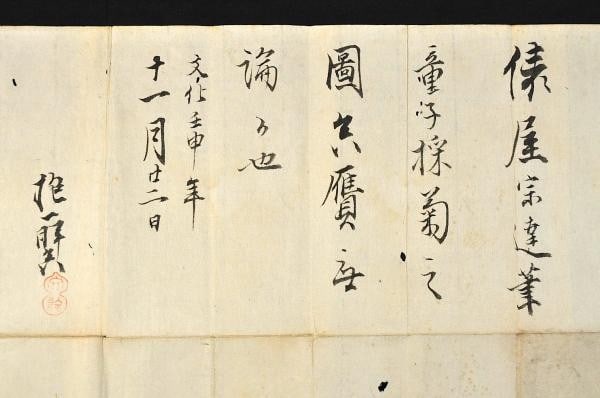 俵屋宗達筆
童子採菊之
圖真贋無
論者也
文化壬申年
十一月廿二日
抱一